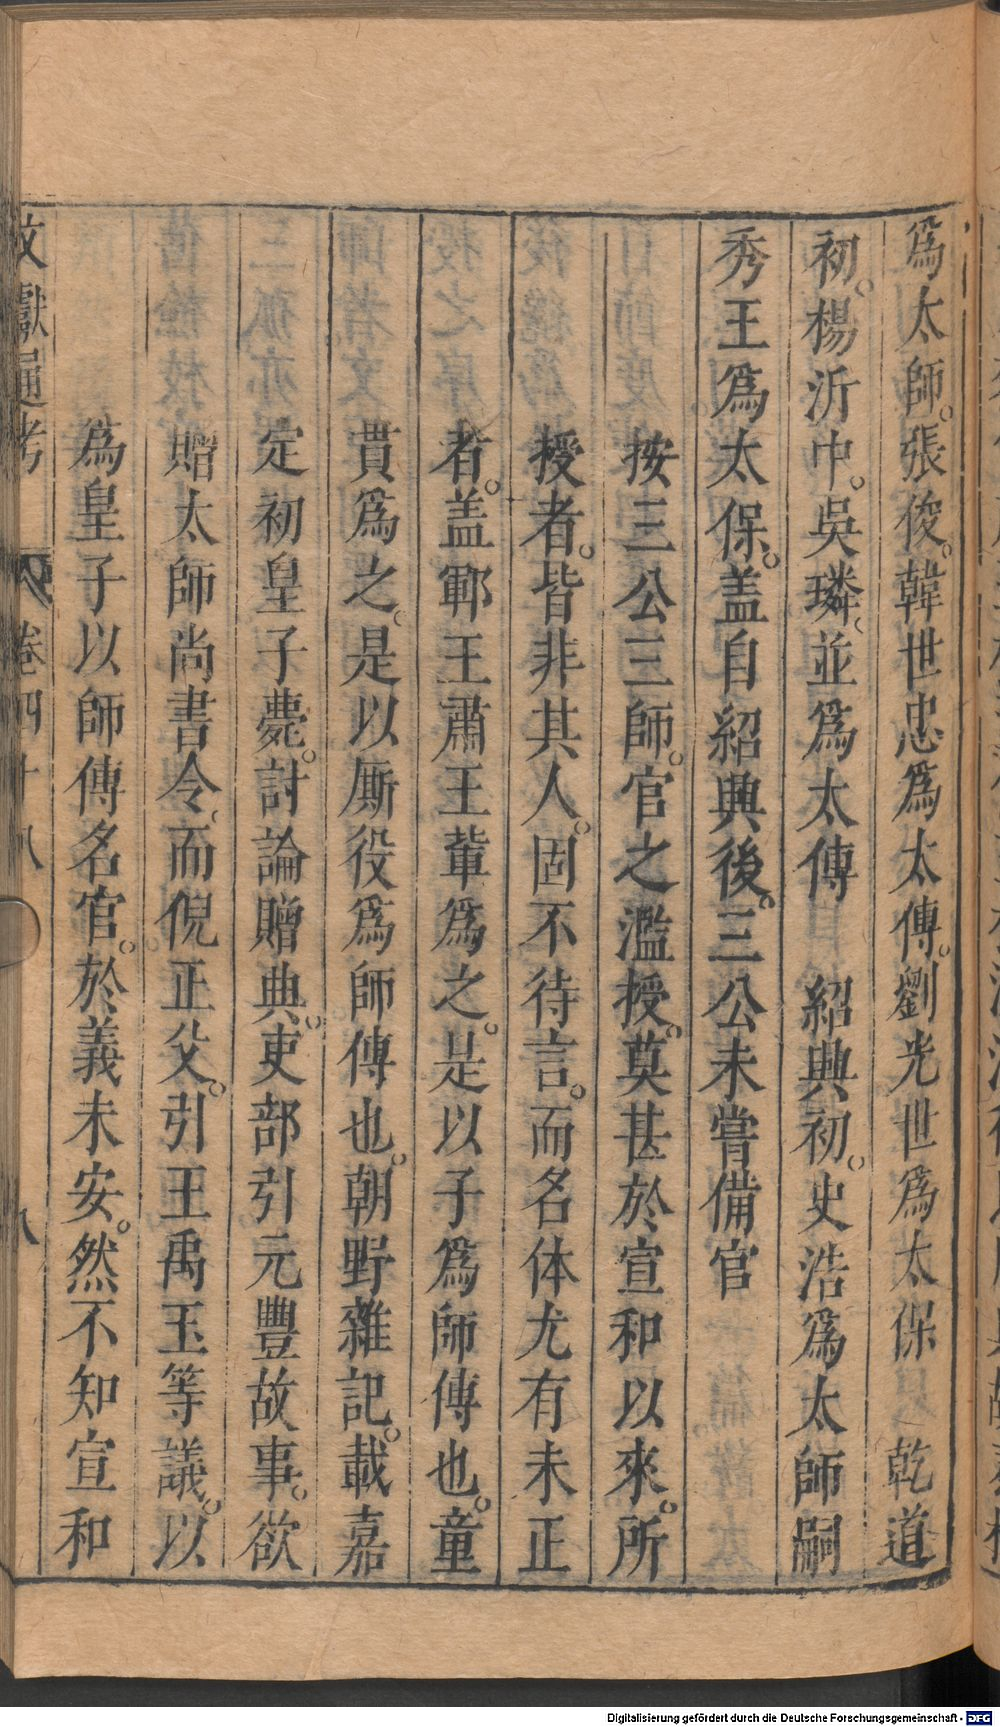 爲太師。張俊。韓世忠爲太傅。劉光世爲太保 乾道
初。楊沂中。吳璘並爲太傅 紹興初。史浩爲太師嗣
秀王爲太保。盖自紹興後。三公未嘗備官
按三公三師。官之濫授。莫甚於宣和以來。所
授者。皆非其人。固不待言。而名体尤有未正
者。盖鄆王肅王輩爲之。是以子爲師傅也。童
貫爲之。是以厮役爲師傅也。朝野雜記。載嘉
定初皇子薨。討論贈典。吏部引元豐故事。欲
贈太師尚書令。而倪正父。引王禹玉等議。以
為皇子以師傅名官。於義未安。然不知宣和
文獻通考 卷四十八 八
Digitalisierung gefördert durch die Deutsche Forschungsgemeinschaft - DFG